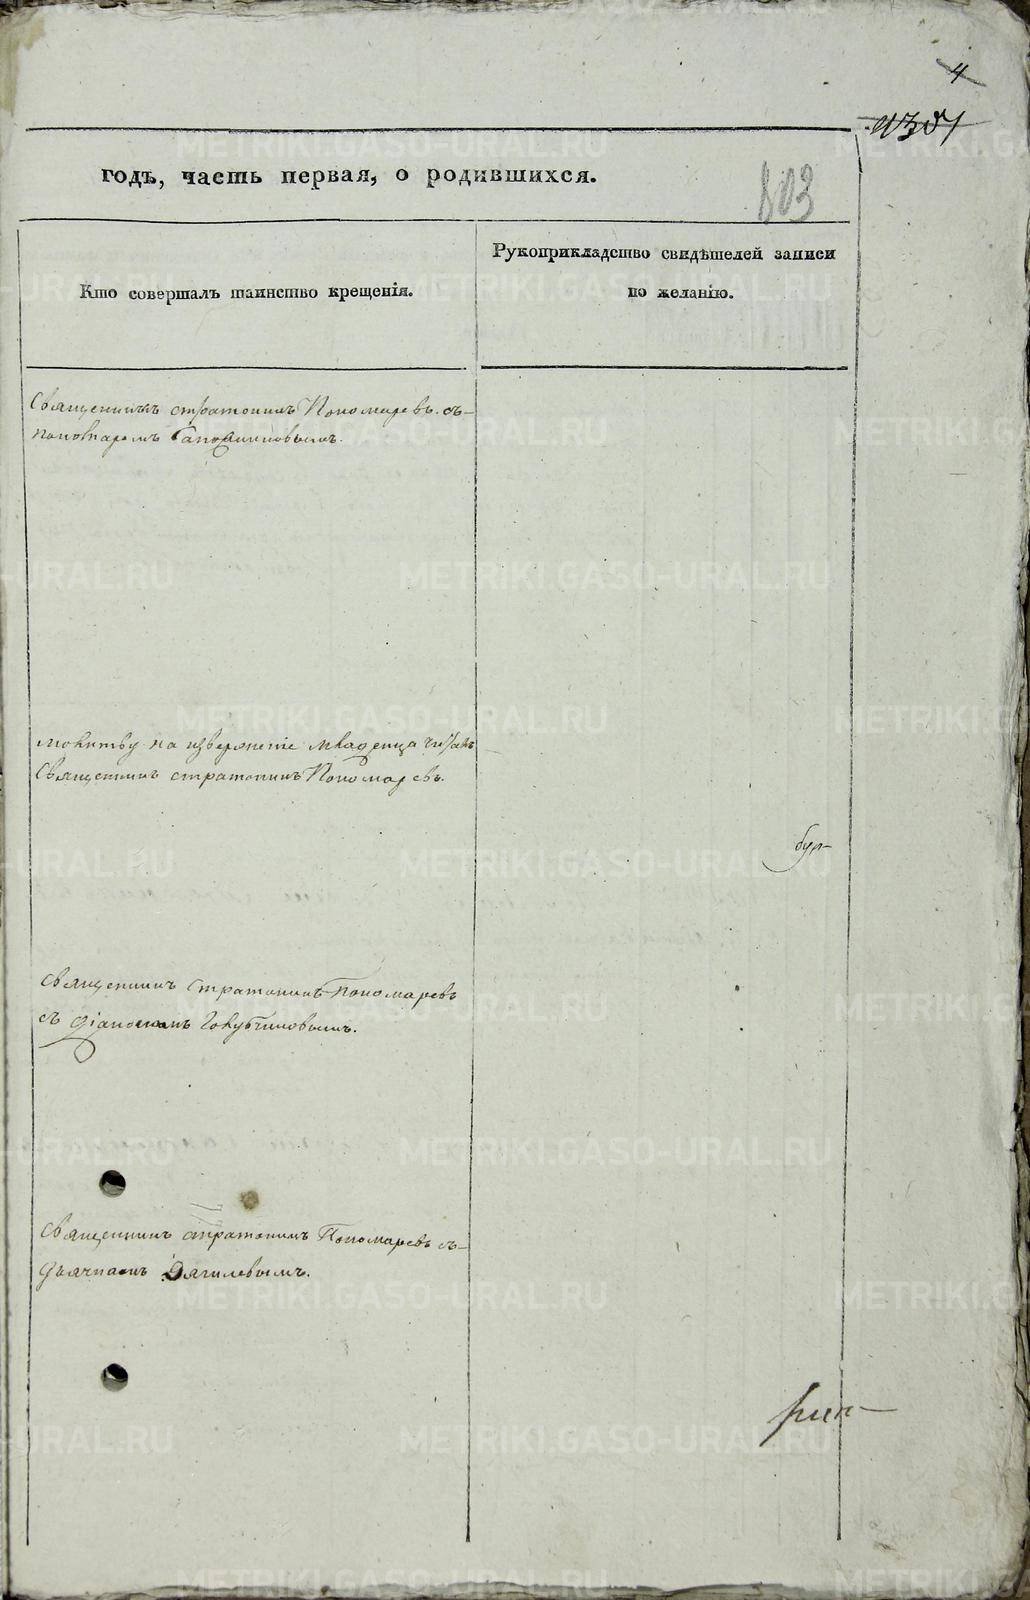 4
годъ, часть первая, о родившихся.
803
Кто совершалъ таинство крещенія.
Рукоприкладство свидѣтелей записи
по желанію.
Священникъ стратоникъ Пономаревъ съ-
пономаремъ
молитву на изверженіе младенца читалъ
Священникъ стратоникъ Пономаревъ.
Священникъ Стратоникъ Пономаревъ
съ діакономъ Голубчиковымъ.
Священникъ стратоникъ Пономаревъ съ-
дьячкомъ Дягилевымъ.
METRIKI.GASO-URAL.RU